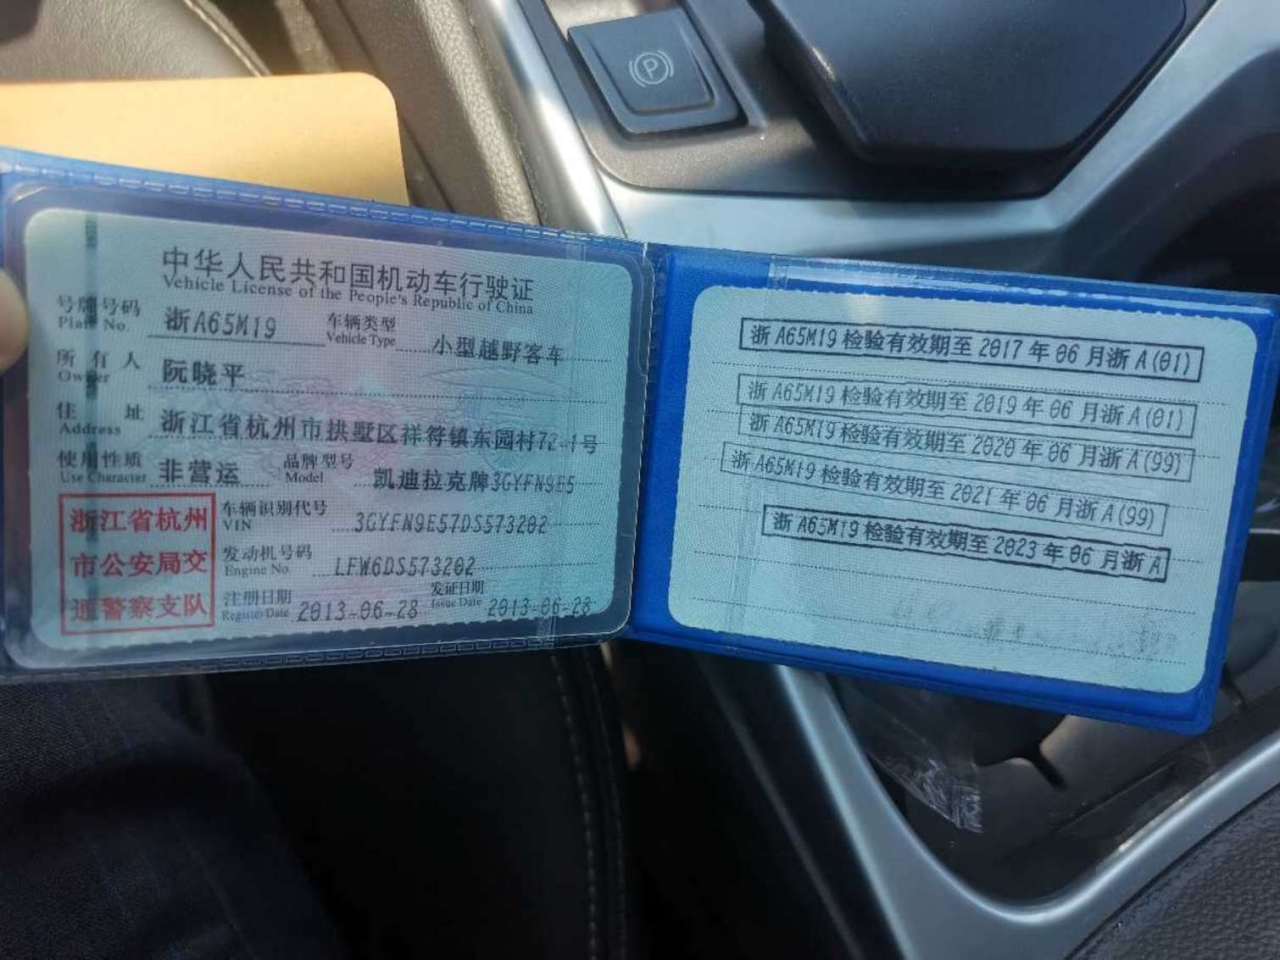 中华人民共和国机动车行驶证
Vehicle License of the People's Republic of China
号牌号码 浙A65M19 车辆类型 小型越野客车
Plate No. Vehicle Type
所有人 阮晓平
Owner
住址 浙江省杭州市拱墅区祥符镇东园村72-1号
Address
使用性质 非营运 品牌型号 凯迪拉克牌3GYFN9E5
Use Character Model
浙江省杭州
市公安局交
通警察支队
车辆识别代号 3GYFN9E57DS573202
VIN
发动机号码 LFW6DS573202
Engine No.
注册日期 2013-06-28 发证日期 2013-06-28
Register Date Issue Date
浙A65M19检验有效期至2017年06月浙A(01)
浙A65M19检验有效期至2019年06月浙A(01)
浙A65M19检验有效期至2020年06月浙A(99)
浙A65M19检验有效期至2021年06月浙A(99)
浙A65M19检验有效期至2023年06月浙A
P